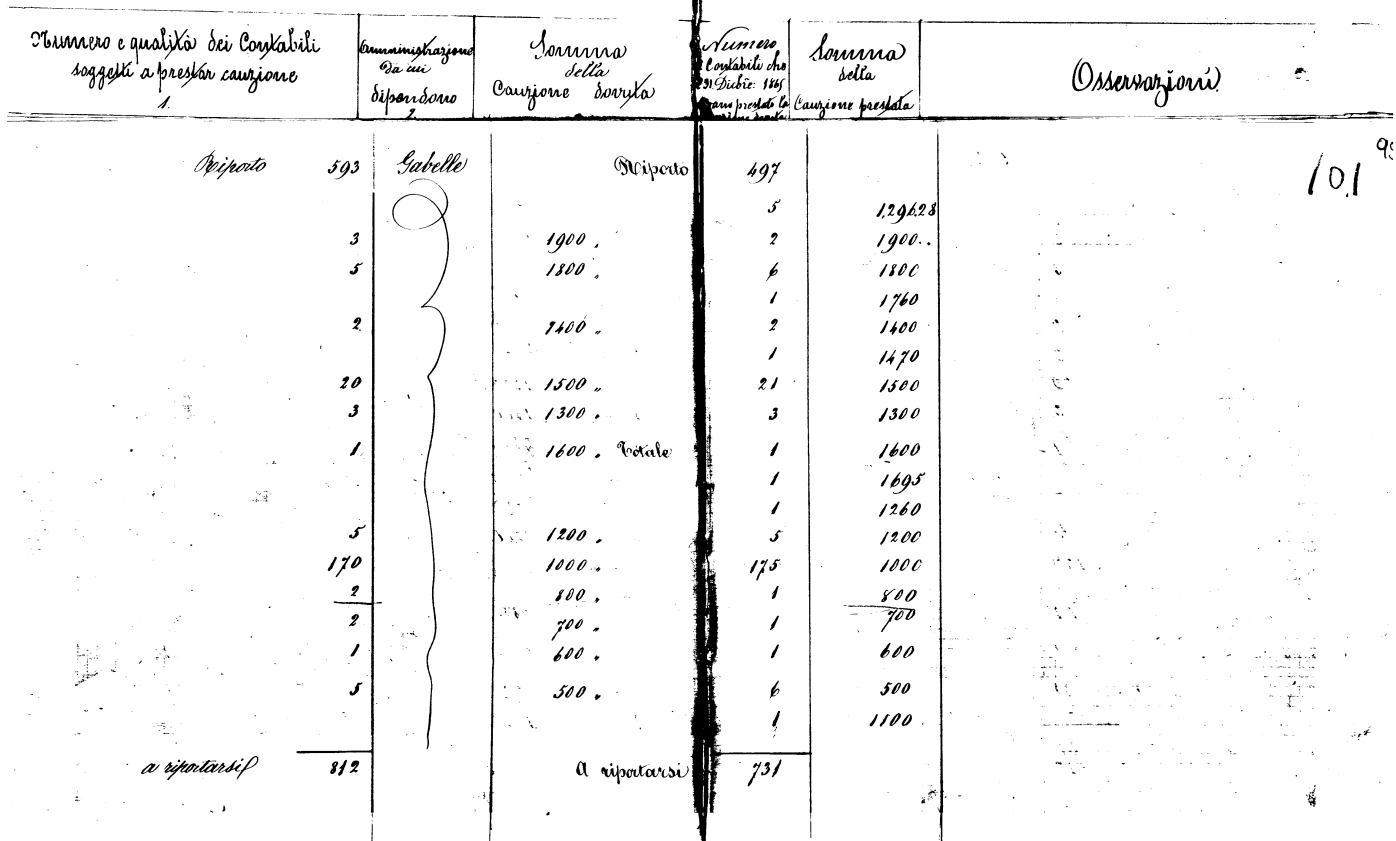 Numero e qualità dei Contabili soggetti a prestar cauzione 1.
Amministrazione da cui dipendono 2.
Somma della Cauzione dovuta
Numero Contabili che 31 Dicbre: 1865 prestato la
Somma della Cauzione prestata
Osservazioni
Riporto 593 Gabelle Riporto 497
101
5 1,296.28
3 1900 " 2 1900..
5 1800 " 6 1800
1 1760
2 1400 " 2 1400
1 1470
20 1500 " 21 1500
3 1300 " 3 1300
1 1600 " Totale 1 1600
1 1695
1 1260
5 1200 " 5 1200
170 1000 " 175 1000
2 800 " 1 800
2 700 " 1 700
1 600 " 1 600
5 500 " 6 500
1 1100
a riportarsi 812 A riportarsi 731